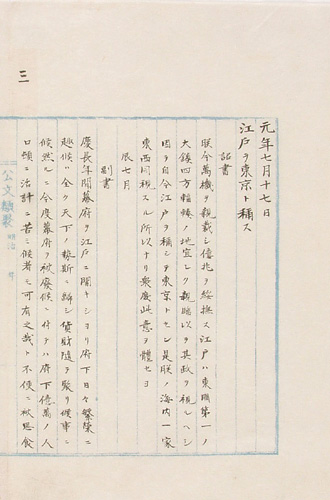 三
元年七月十七日
江戸ヲ東京ト稱ス
詔書
朕今萬機ヲ親裁シ億兆ヲ綏撫ス江戸ハ東國第一ノ
大鎮四方輻輳ノ地宜シク親臨以テ其政ヲ視ルヘシ
因テ自今江戸ヲ稱シテ東京トセン是朕ノ海内一家
東西同視スル所以ナリ衆庶此意ヲ體セヨ
辰七月
副書
慶長年間幕府ヲ江戸ニ開キシヨリ府下日々繁榮ニ
趣候ハ全ク天下ノ勢斯ニ歸シ貨財隨テ聚リ候事ニ
候然ルニ今度幕府ヲ被廢候ニ付テハ府下億萬ノ人
口頓ニ活計ニ苦ミ候者モ可有之哉ト不便ニ被思食
公文録 明治 年